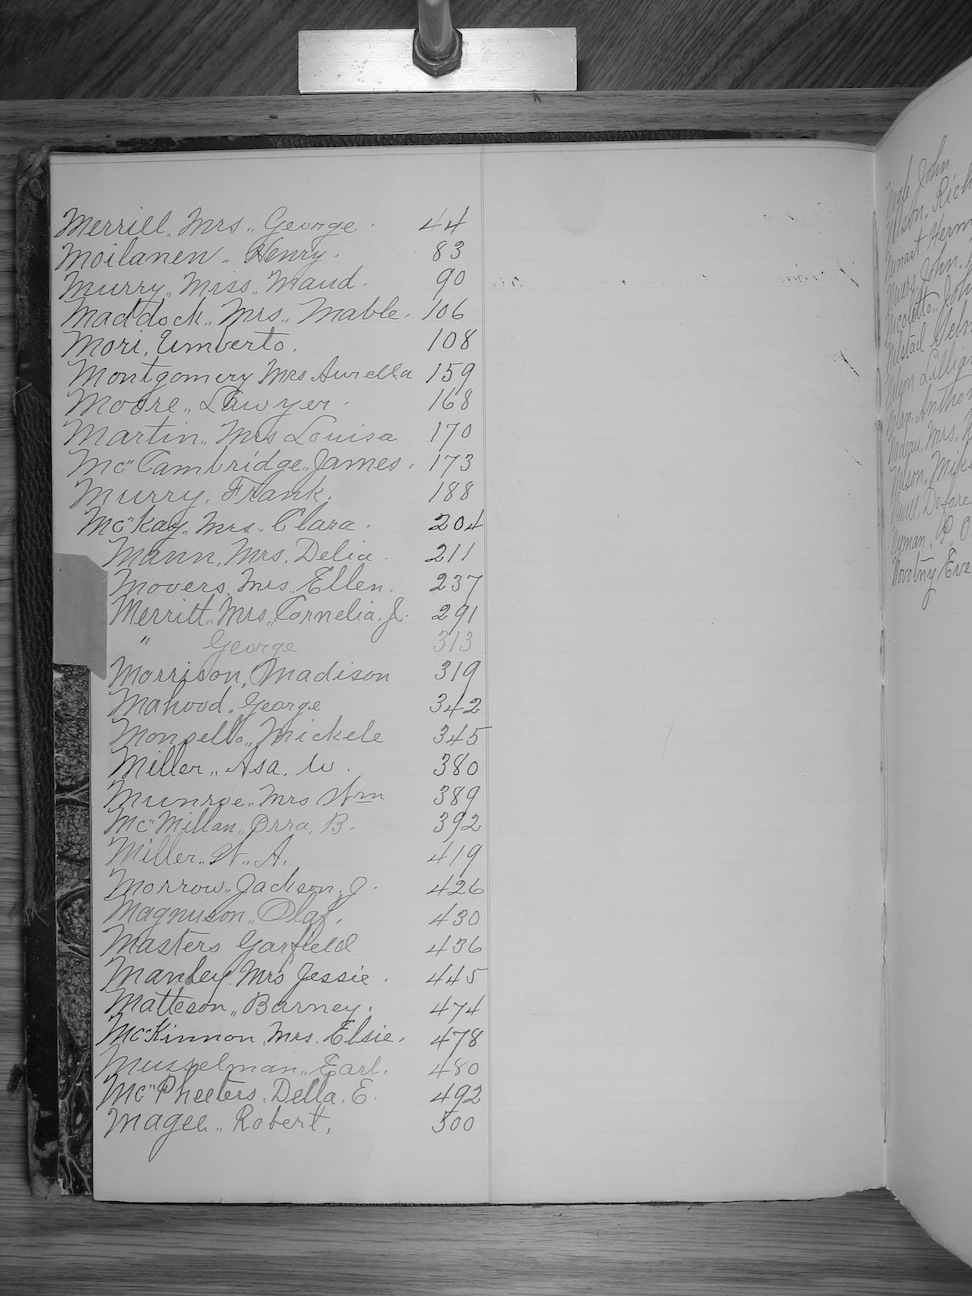 Merrill, Mrs. George. 44
Moilanen, Henry. 83
Murry, Miss. Maud. 90
Maddock, Mrs. Mable. 106
Mori, Umberto. 108
Montgomery Mrs Aurella 159
Moore, Lawyer. 168
Martin, Mrs Louisa 170
McCambridge, James. 173
Murry, Frank. 188
McKay, Mrs. Clara. 204
Mann, Mrs, Delia. 211
Movers, Mrs Ellen. 237
Merritt, Mrs, Cornelia, J. 291
" George 313
Morrison, Madison 319
Mahood, George 342
Monsello, Mickele 345
Miller, Asa. W. 380
Munroe, Mrs Wm 389
McMillan, Orra, B. 392
Miller, W. A. 419
Morrow, Jackson, J. 426
Magnuson, Olaf. 430
Masters Garfield 436
Manley, Mrs Jessie. 445
Matteson, Barney. 474
McKinnon, Mrs. Elsie. 478
Musselman, Earl. 480
McPheeters, Della, E. 492
Magee, Robert, 500
John
Rich
John,
Lillig
Mrs.
Eva